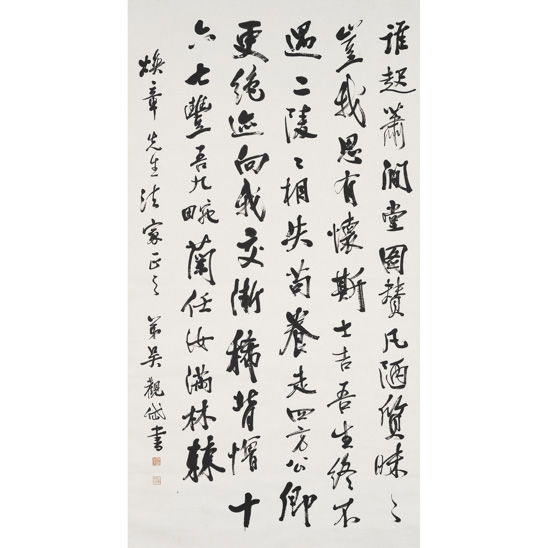 誰起蕭閒堂圖贊凡洒質昧〻
豈我思有懷斯士吉吾生終不
遇二陵〻相失苟養走四方公卿
更絕迹向我交漸稀背憎十
六七豐吾九畹蘭任汝滿林棘
煥章先生法家正之 弟吳觀岱書